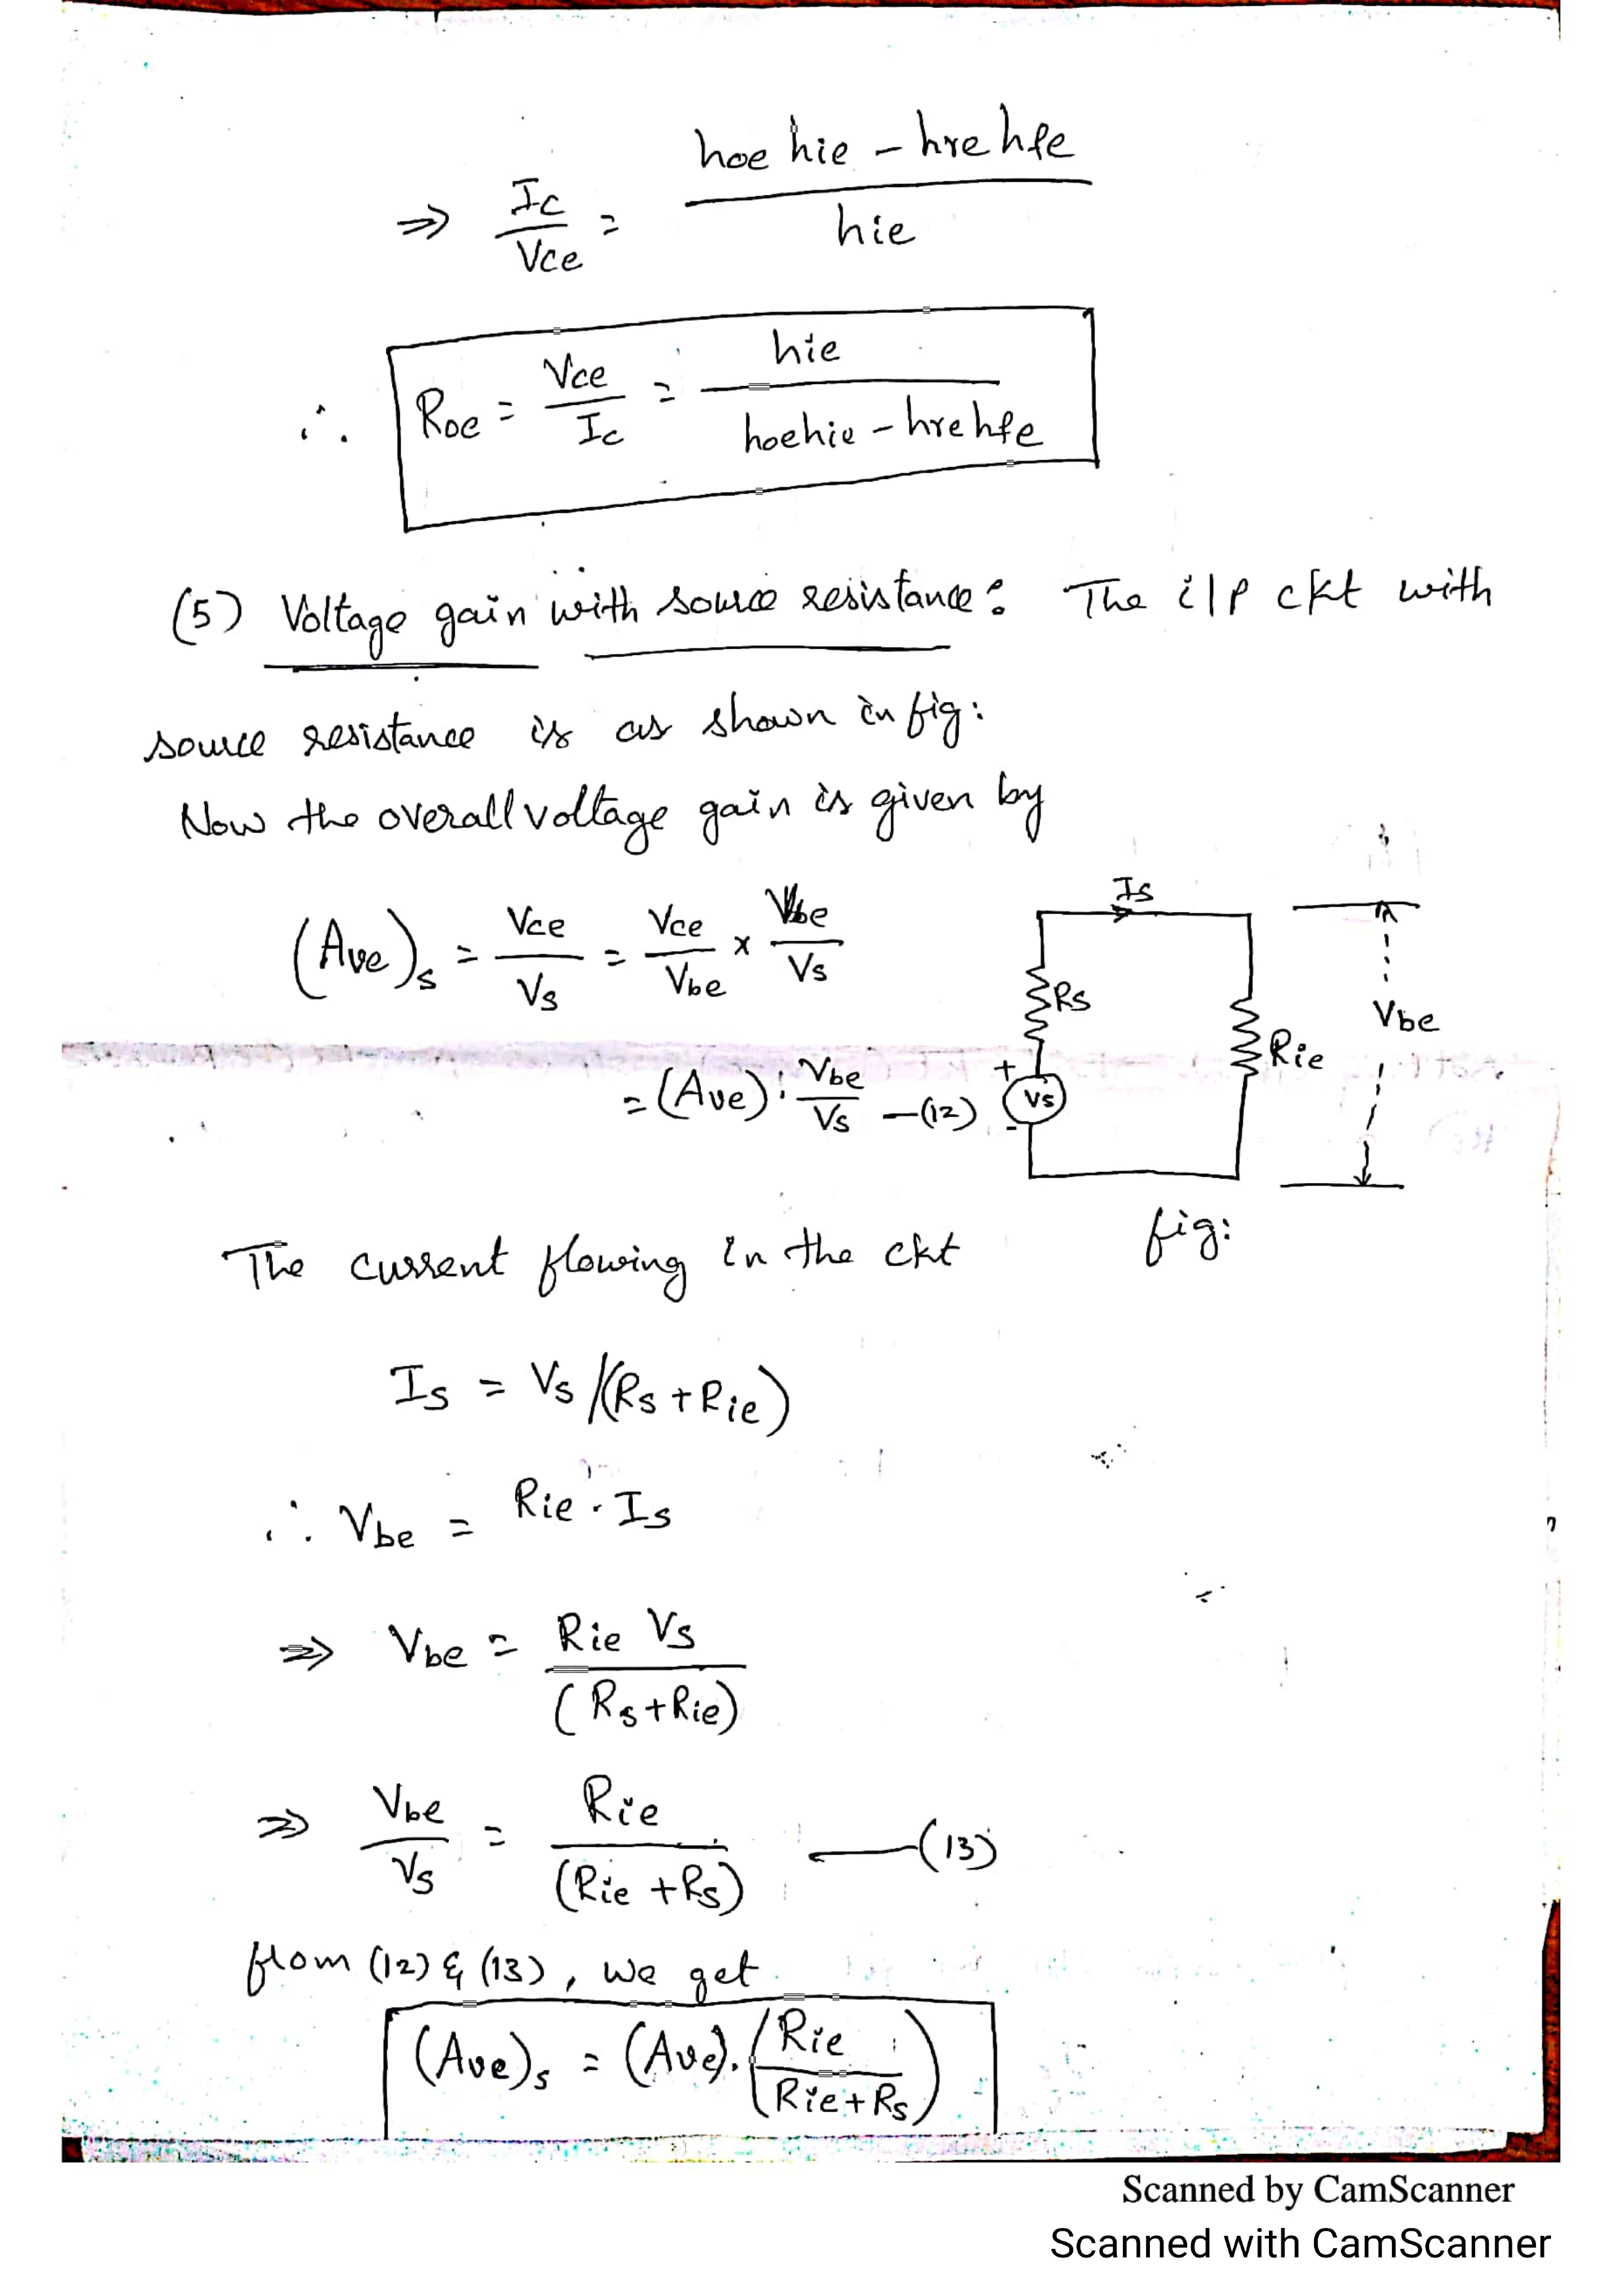 ⇒ Ic/Vce = (hoe hie - hre hfe)/hie
∴ Roe = Vce/Ic = hie/(hoehie - hrehfe)
(5) Voltage gain with source resistance: The i/p ckt with
source resistance is as shown in fig:
Now the overall voltage gain is given by
(Ave)s = Vce/Vs = Vce/Vbe x Vbe/Vs
= (Ave). Vbe/Vs —(12)
Is
Rs
+
Vs
-
Rie
Vbe
fig:
The current flowing in the ckt
Is = Vs/(Rs + Rie)
∴ Vbe = Rie . Is
⇒ Vbe = Rie Vs/(Rs+Rie)
⇒ Vbe/Vs = Rie/(Rie + Rs) —(13)
from (12) & (13), we get
(Ave)s = (Ave).(Rie/(Rie+Rs))
Scanned by CamScanner
Scanned with CamScanner